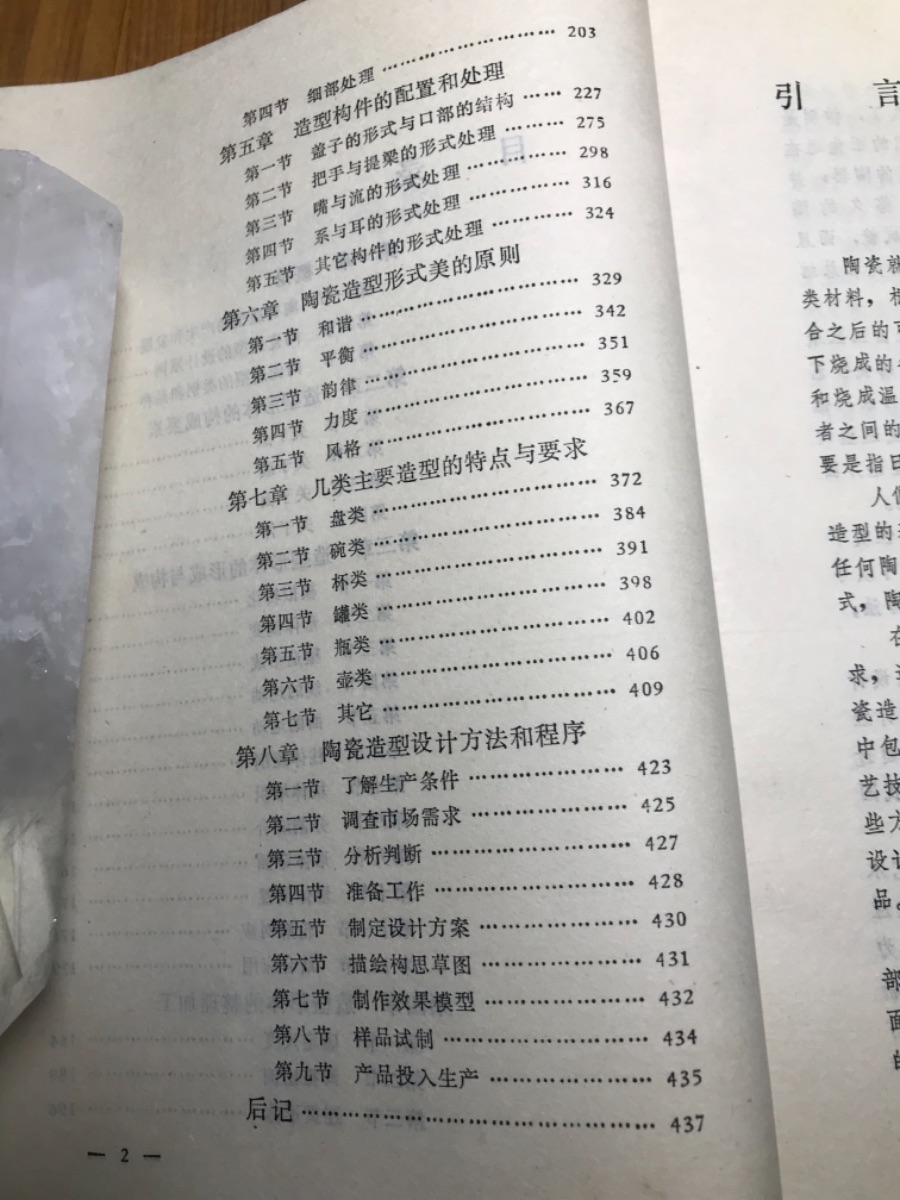 第四节 细部处理 …………………… 203
第五章 造型构件的配置和处理
第一节 盖子的形式与口部的结构 …… 227
第二节 把手与提梁的形式处理 ……… 275
第三节 嘴与流的形式处理 …………… 298
第四节 系与耳的形式处理 …………… 316
第五节 其它构件的形式处理 ………… 324
第六章 陶瓷造型形式美的原则
第一节 和谐 …………………………… 329
第二节 平衡 …………………………… 342
第三节 韵律 …………………………… 351
第四节 力度 …………………………… 359
第五节 风格 …………………………… 367
第七章 几类主要造型的特点与要求
第一节 盘类 …………………………… 372
第二节 碗类 …………………………… 384
第三节 杯类 …………………………… 391
第四节 罐类 …………………………… 398
第五节 瓶类 …………………………… 402
第六节 壶类 …………………………… 406
第七节 其它 …………………………… 409
第八章 陶瓷造型设计方法和程序
第一节 了解生产条件 ………………… 423
第二节 调查市场需求 ………………… 425
第三节 分析判断 ……………………… 427
第四节 准备工作 ……………………… 428
第五节 制定设计方案 ………………… 430
第六节 描绘构思草图 ………………… 431
第七节 制作效果模型 ………………… 432
第八节 样品试制 ……………………… 434
第九节 产品投入生产 ………………… 435
后记 …………………………………… 437
— 2 —
引 言
陶瓷就
类材料，
合之后的可
下烧成的
和烧成温
者之间的
要是指日
人们
造型的
任何陶
式，陶
在
求，
瓷造
中包
艺技
些方
设计
品。
部
面
的